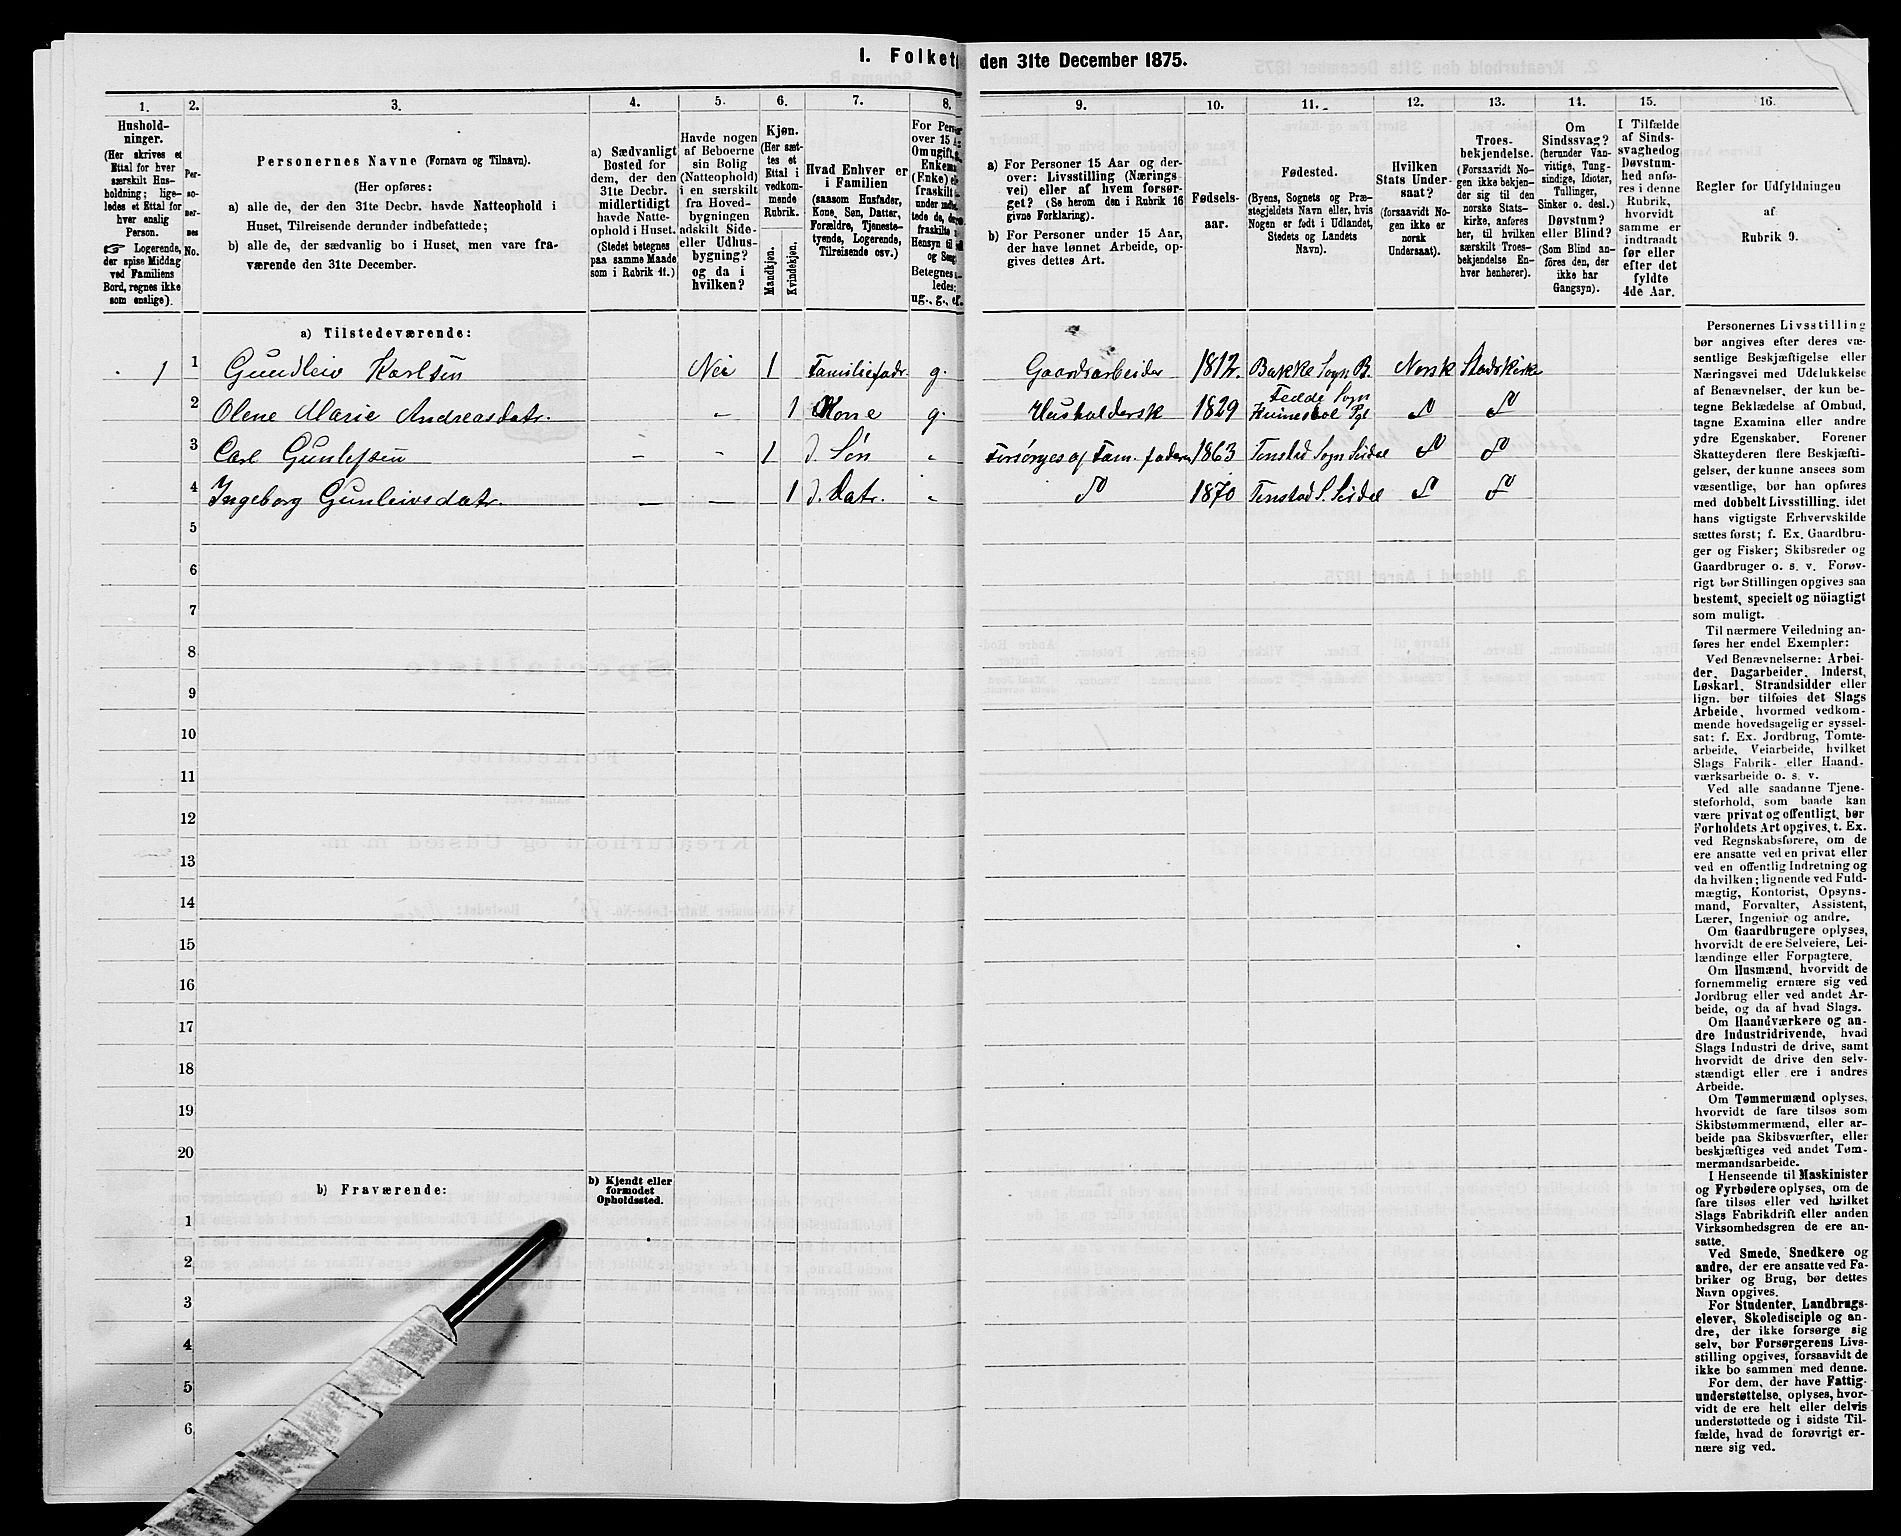 I. Folket
den 31te December 1875.
1.
2.
3.
4.
5.
6.
7.
8.
9.
10.
11.
12.
13.
14.
15.
16.
Hushold-
ninger.
(Her skrives et
Ettal for hver
særskilt Hus-
holdning; lige-
ledes et Ettal for
hver enslig
Person.
☞ Logerende,
der spise Middag
ved Familiens
Bord, regnes ikke
som enslige).
Per-
so-
ner-
nes
No.
Personernes Navne (Fornavn og Tilnavn).
(Her opføres:
a) alle de, der den 31te Decbr. havde Natteophold i
Huset, Tilreisende derunder indbefattede;
b) alle de, der sædvanlig bo i Huset, men vare fra-
værende den 31te December.
a) Sædvanligt
Bosted for
dem, der den
31te Decbr.
midlertidigt
havde Natte-
ophold i Huset.
(Stedet betegnes
paa samme Maade
som i Rubrik 11.)
Havde nogen
af Beboerne
sin Bolig
(Natteophold)
i en særskilt
fra Hoved-
bygningen
adskilt Side-
eller Udhus-
bygning?
og da i
hvilken?
Kjøn.
(Her sæt-
tes et
Ettal i
vedkom-
mende
Rubrik.
Mandkjøn.
Kvindekjøn.
Hvad Enhver er
i Familien
(saasom Husfader,
Kone, Søn, Datter,
Forældre, Tjeneste-
tyende, Logerende,
Tilreisende osv.)
For Perso
over 15 A
Om ugift,
Enkema
(Enke) e
fraskilt
under
tede de, der
fraskilte
Hensyn til
og Seng
Betegnes
ledes:
ug., g., e
a) For Personer 15 Aar og der-
over: Livsstilling (Nærings-
vei) eller af hvem forsør-
get? (Se herom den i Rubrik 16
givne Forklaring).
b) For Personer under 15 Aar,
der have lønnet Arbeide, op-
gives dettes Art.
Fødsels-
aar.
Fødested.
(Byens, Sognets og Præ-
stegjeldets Navn eller, hvis
Nogen er født i Udlandet,
Stedets og Landets
Navn).
Hvilken
Stats Under-
saat?
(forsaavidt No-
gen ikke er
norsk
Undersaat).
Troes-
bekjendelse.
(Forsaavidt No-
gen ikke bekjen-
der sig til den
norske Stats-
kirke, anføres
her, til hvilken
særskilt Troes-
bekjendelse En-
hver henhører).
Om
Sindssvag?
(herunder Van-
vittige, Tung-
sindige, Idioter,
Tullinger,
Sinker o. desl.)
Døvstum?
eller Blind?
(Som Blind an-
føres den, der
ikke har
Gangsyn).
I Tilfælde
af Sinds-
svaghed og
Døvstum-
hed anfø-
res i denne
Rubrik,
hvorvidt
samme er
indtraadt
før eller
efter det
fyldte
4de Aar.
Regler for Udfyldningen
af
Rubrik 9.
a) Tilstedeværende:
1 1 Gundleiv Karlsen Nei 1 Familiefadr g. Gaardsarbeider 1812. Bakke Sogn B. Norsk Statskirke
2 Olene Marie Andreasdatr. - 1 Kone g. Husholdersk 1829 Fedde Sogn
3 Carl Gunlefsen - - 1 d. Søn - Forsørges af Fam. faderen 1863 Tonstad Sogn Sirdal
4 Ingeborg Gunleivsdatr. - - 1 d. Datr. - 1870 Tonstad S. Sirdal
5
6
7
8
9
10
11
12
13
14
15
16
17
18
19
20
b) Fraværende:
b) Kjendt eller
formodet
Opholdssted.
1
2
3
4
5
6
Personernes Livsstilling
bør angives efter deres væ-
sentlige Beskjæftigelse eller
Næringsvei med Udelukkelse
af Benævnelser, der kun be-
tegne Beklædelse af Ombud,
tagne Examina eller andre
ydre Egenskaber. Forener
Skatteyderen flere Beskjæfti-
gelser, der kunne ansees som
væsentlige, bør han opføres
med dobbelt Livsstilling, idet
hans vigtigste Erhvervskilde
sættes først; f. Ex. Gaardbru-
ger og Fisker; Skibsreder og
Gaardbruger o. s. v. Forøv-
rigt bør Stillingen opgives saa
bestemt, specielt og nöiagtigt
som muligt.
Til nærmere Veiledning an-
føres her endel Exempler:
Ved Benævnelserne: Arbei-
der, Dagarbeider, Inderst,
Løskarl, Strandsidder eller
lign. bør tilføies det Slags
Arbeide, hvormed vedkom-
mende hovedsagelig er syssel-
sat; f. Ex. Jordbrug, Tomte-
arbeide, Veiarbeide, hvilket
Slags Fabrik- eller Haand-
værksarbeide o. s. v.
Ved alle saadanne Tjene-
steforhold, som baade kan
være privat og offentligt, bør
Forholdets Art opgives, t. Ex.
ved Regnskabsførere, om de
ere ansatte ved en privat eller
ved en offentlig Indretning og
da hvilken; lignende ved Fuld-
mægtig, Kontorist, Opsyns-
mand, Forvalter, Assistent,
Lærer, Ingeniør og andre.
Om Gaardbrugere oplyses,
hvorvidt de ere Selveiere, Lei-
lændinge eller Forpagtere.
Om Husmænd, hvorvidt de
fornemmelig ernære sig ved
Jordbrug eller ved andet Ar-
beide, og da af hvad Slags.
Om Haandværkere og an-
dre Industridrivende, hvad
Slags Industri de drive, samt
hvorvidt de drive den selv-
stændigt eller ere i andres
Arbeide.
Om Tømmermænd oplyses,
hvorvidt de fare tilsøs som
Skibstømmermænd, eller ar-
beide paa Skibsværfter, eller
beskjæftiges ved andet Tøm-
mermandsarbeide.
I Henseende til Maskinister
og Fyrbødere oplyses, om de
fare tilsøs eller ved hvilket
Slags Fabrikdrift eller anden
Virksomhedsgren de ere an-
satte.
Ved Smede, Snedkere og
andre, der ere ansatte ved Fa-
briker og Brug, bør dettes
Navn opgives.
For Studenter, Landbrugs-
elever, Skoledisciple og an-
dre, der ikke forsørge sig
selv, bør Forsørgerens Livs-
stilling opgives, forsaavidt de
ikke bo sammen med denne.
For dem, der have Fattig-
understøttelse, oplyses, hvor-
vidt de ere helt eller delvis
understøttede og i sidste Til-
fælde, hvad de forøvrigt er-
nære sig ved.